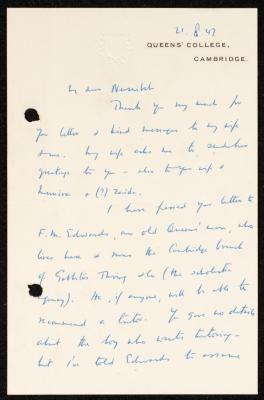 21.8.47
QUEENS' COLLEGE,
CAMBRIDGE.
My dear Nuseibeh
Thank you very much for
your letter & kind messages to my wife
& me. My wife asks me to send her
greetings to you – also to your wife &
& (?) Zaida.
I have passed your letter to
F. M. Edwards, an old Queens' man, who
lives here & runs the Cambridge branch
of Gabbitas Thring & Co (the scholastic
agency). He, if anyone, will be able to
recommend a tutor. You gave no details
about the boy who wants tutoring –
but I've told Edwards to assume